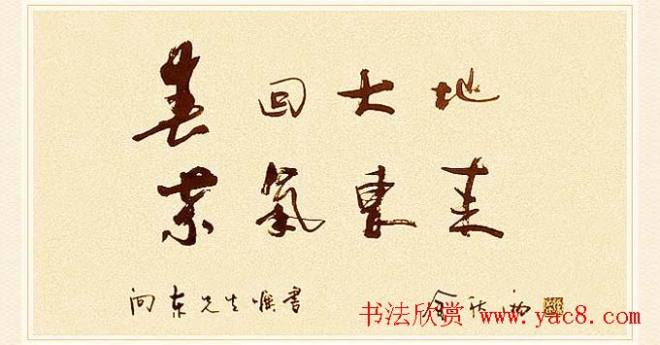 春回大地
紫氣東来
向东先生书
余秋雨
书法欣赏 www.yac8.com